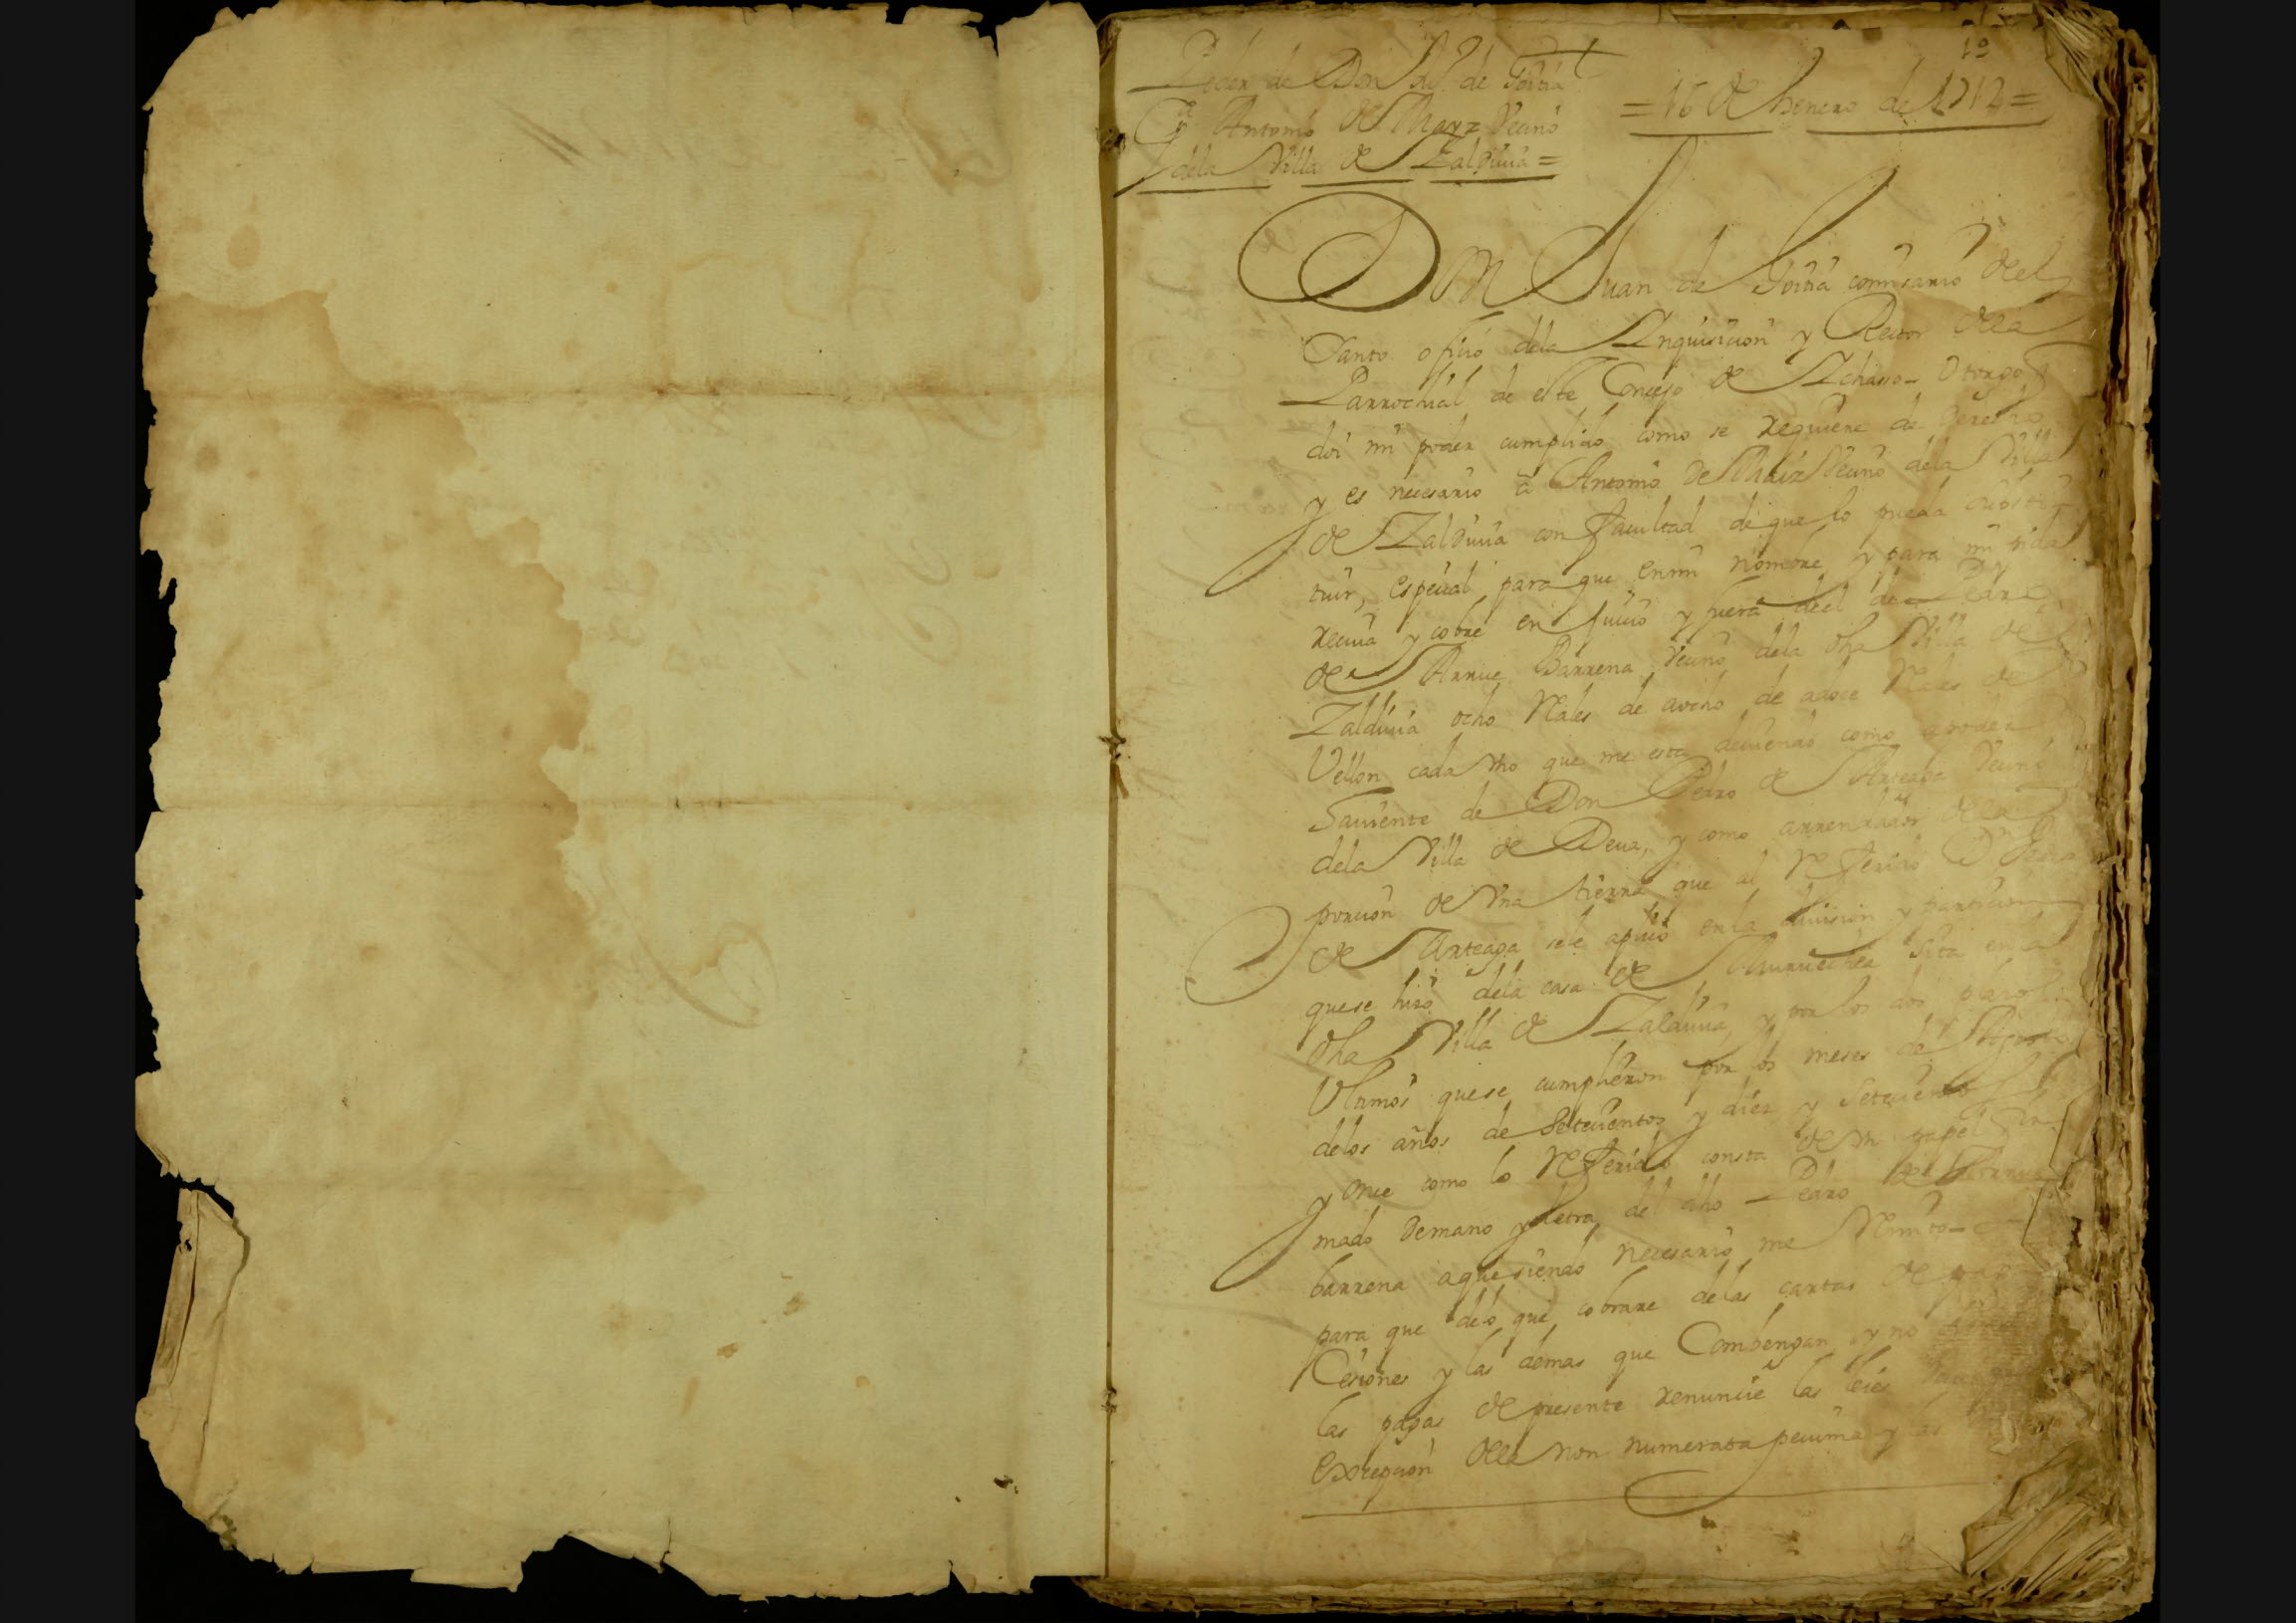 1º
Poder de Don Ju.º de Goitia
Aº Antonio de Maiz Vecino
de la Villa de Zaldiuia =
= 16 de henero de 1712 =
Don Juan de Goitia comisario del
Santo oficio dela Inquisicion y Rector dela
Parrochial de este Concejo de Ichaso - Otorgo
doi mi poder cumplido como se requiere de derecho
y es necesario a Antonio de Maiz Vecino dela Villa
de Zaldiuia con facultad de que lo pueda sosti
tuir, especial para que en mi nombre y para mi pida
reciua y cobre en juicio y fuera deel de Pedro
de Arrue Barrena Vecino dela dha Villa de
Zaldiuia ocho Reales de aocho de adoce Reales de
Vellon cada Vno que me esta deuiendo como apoder
hauiente de Don Pedro de Arteaga Vecino
dela Villa de Deua, y como arrendador dela
porcion de Vna tierra que al Referido Dn Pedro
de Arteaga sele aplicó enla diuision y particion
quese hizo dela casa de sita enla
dha Villa de Zaldiuia, y por los dos
Vltimos quese cumplieron por los meses de
delos años de Setecientos y diez y Setecientos
y once como lo Referido consta de Vn papel fir
mado demano y letra del dho Pedro de Arrue
barrena aque siendo necesario me Remito -
para que delo que cobrare delas cartas de
Cesiones y las demas que Combengan y no
las pagas de presente renuncie las leies
Excepcion dela non numerata pecunia y